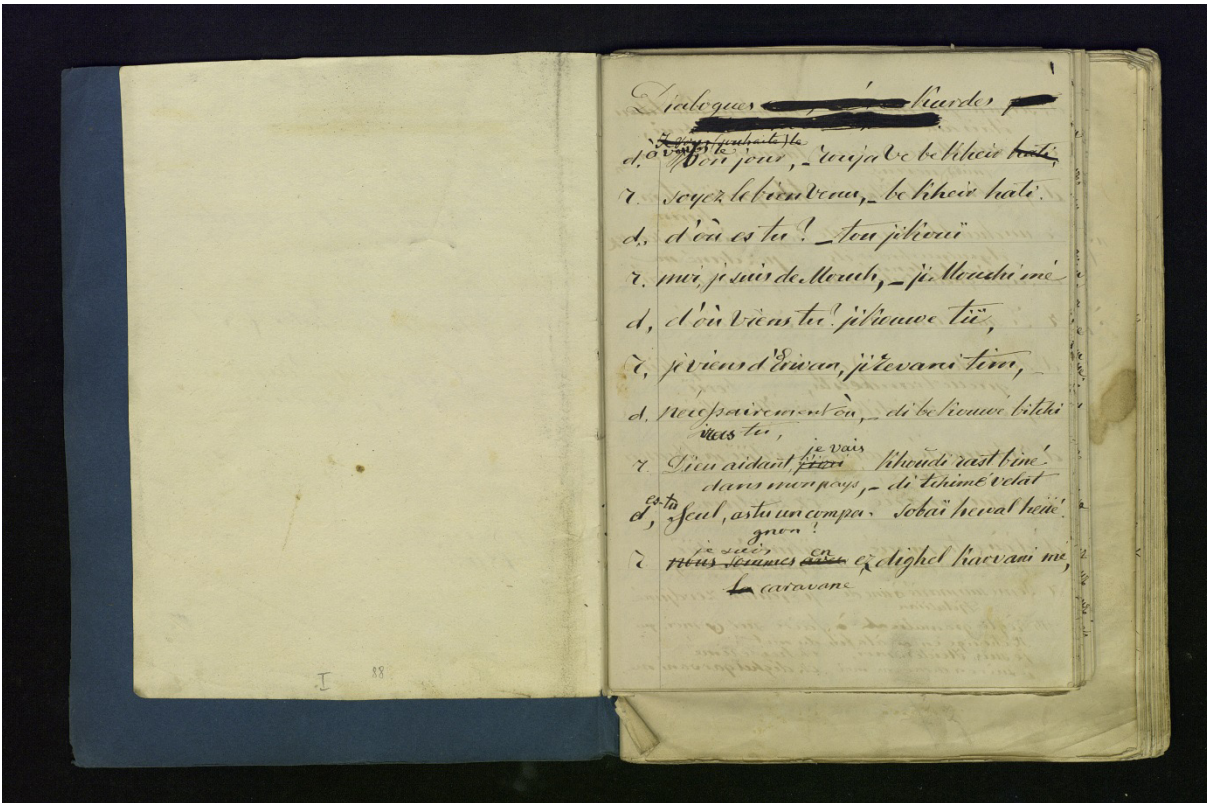 1
Dialogues Kurdes
Je vous (souhaite) le
d. Bon jour, – rouja ve be kheir hati,
r. soyez le bien venu, – be kheir hati.
d, d'où es tu? – tou ji kouï
r. moi, je suis de Mouch, – ji Mouchi mé
d, d'où viens tu? ji kouwe tiï,
r, je viens d'Erivan, ji Revani tim,
d. necessairement où, – di be kouwé bitchi
iras tu,
je vais
r. Dieu aidant, j'irai Khoudi rast biné
dans mon pays, – di tchimé velat
es-tu
d, Seul, as tu un compa- sobaï hewal heïé
gnon?
je suis en
r nous sommes avec ez dighel karvani me,
la caravane
I 88